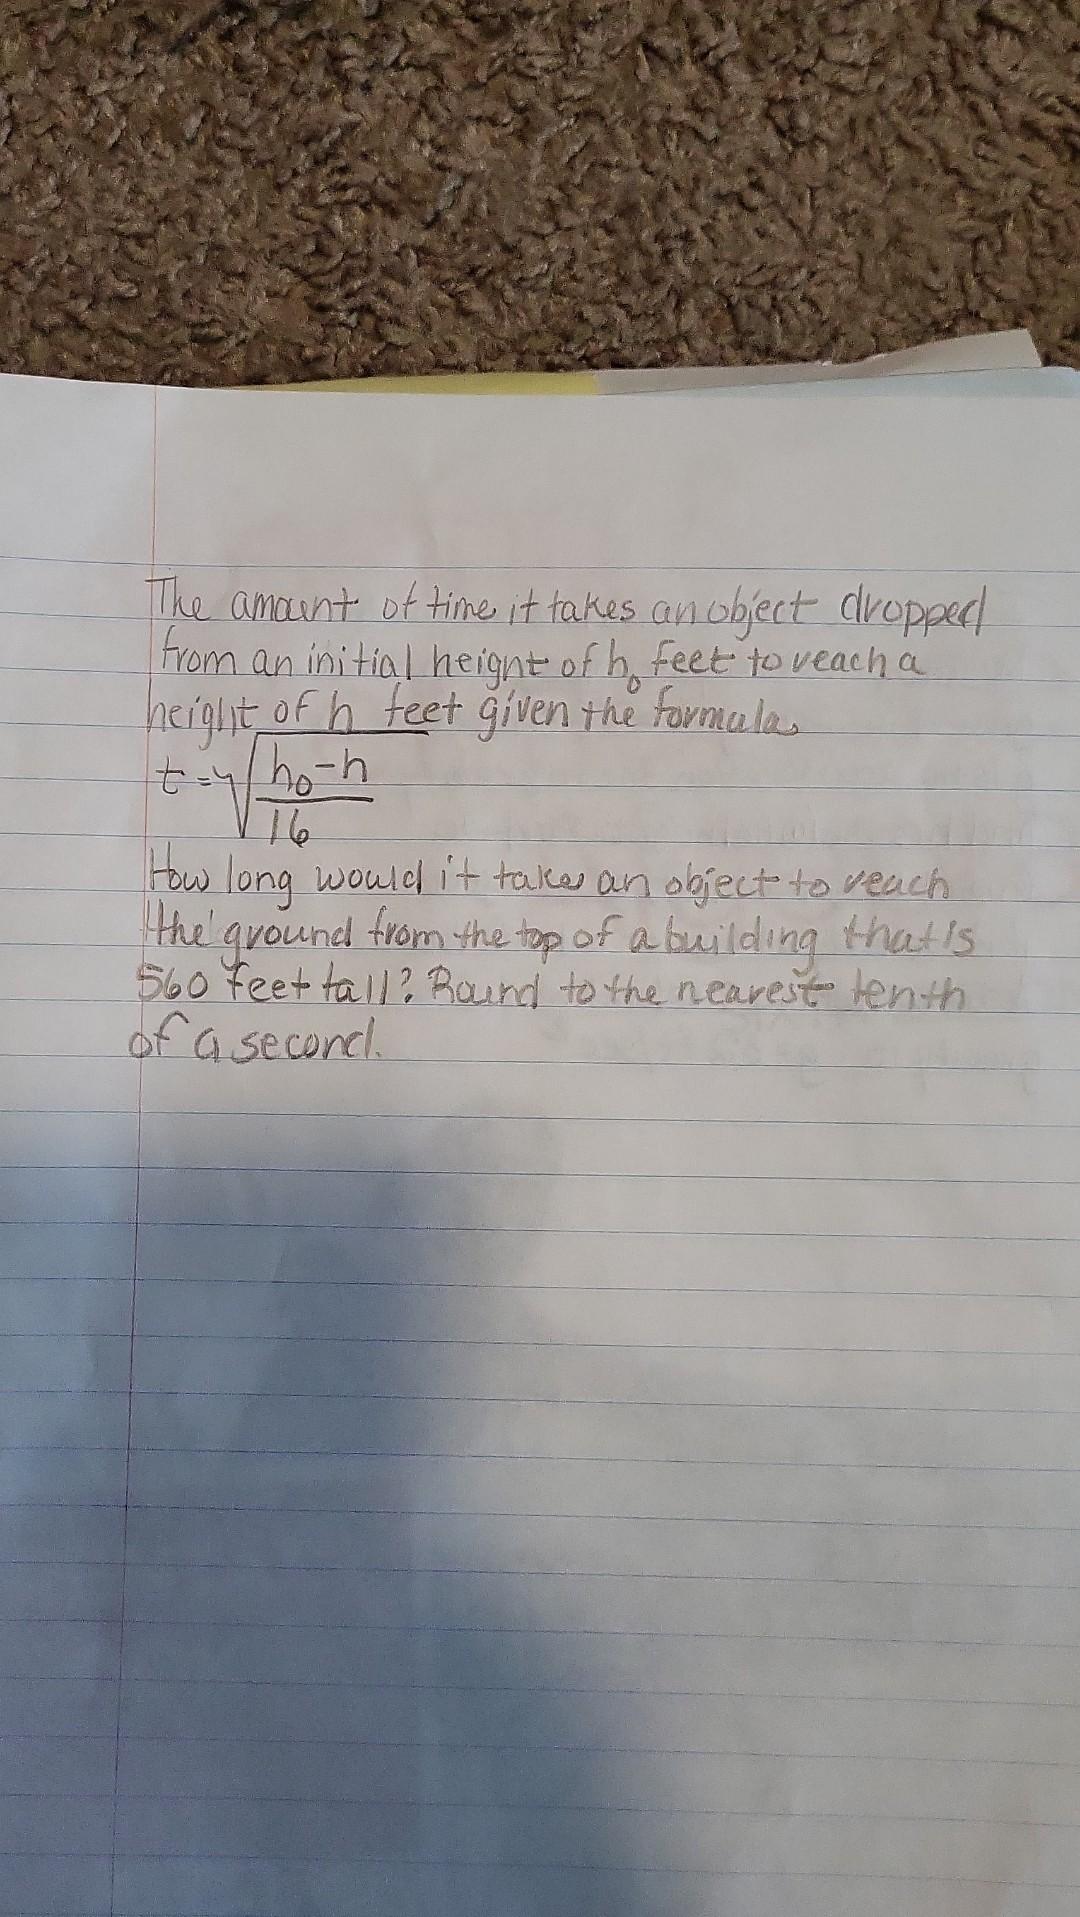 The amount of time it takes an object dropped
from an initial height of h₀ feet to reach a
height of h feet given the formula,
t = √((h₀-h)/16)
How long would it take an object to reach
the ground from the top of a building that is
560 feet tall? Round to the nearest tenth
of a second.